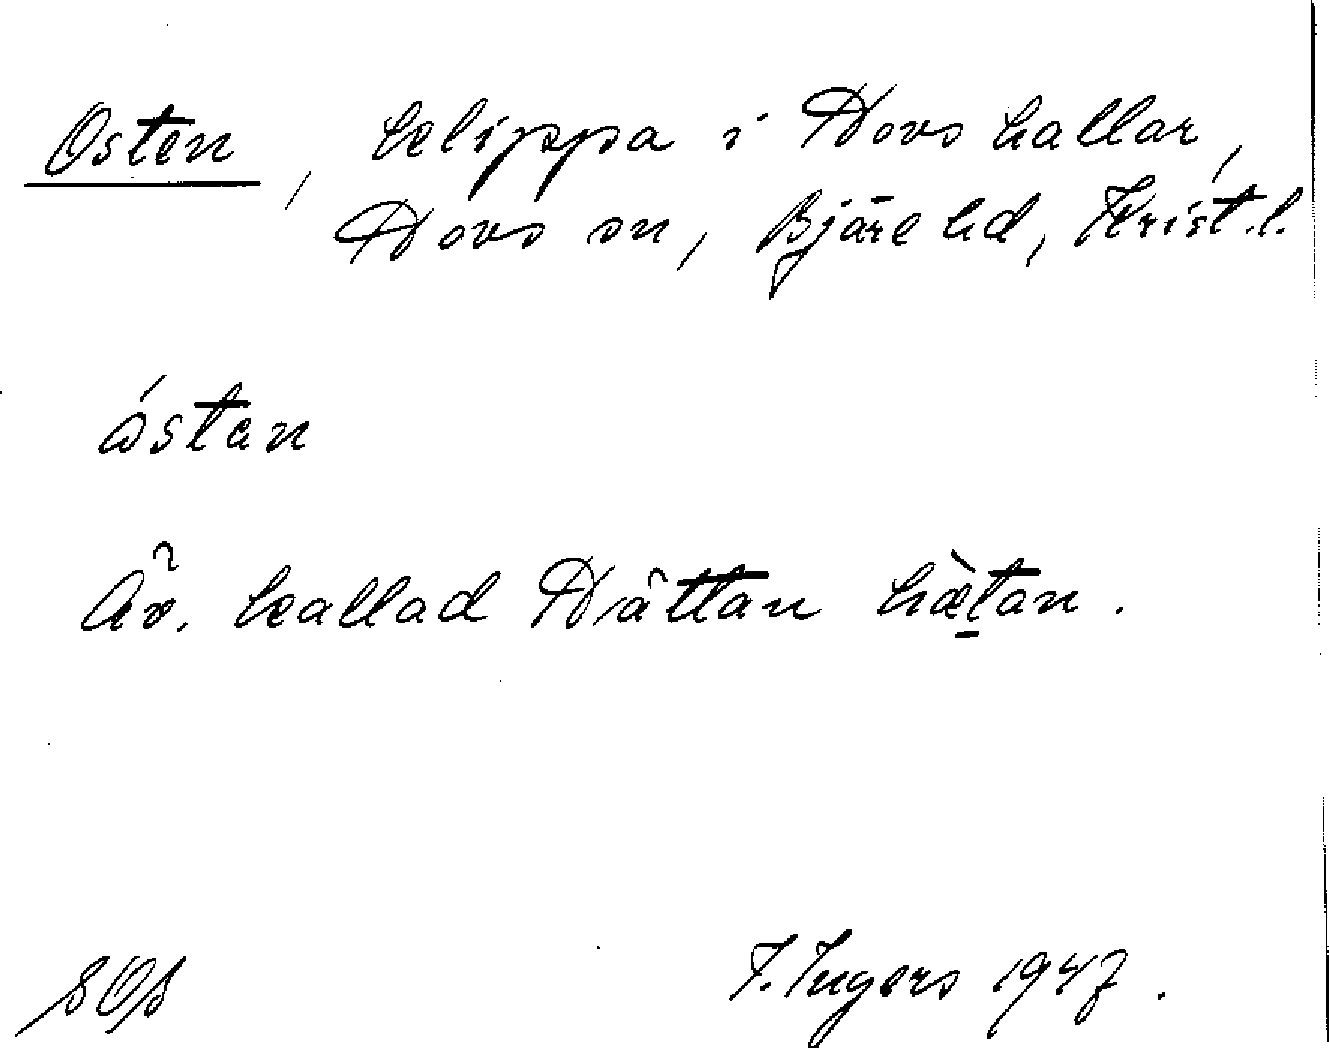 Osten, klippa i Hovs hallar,
Hovs sn, Bjäre hd, Krist.l.
ɷ́stan
Äv. kallad Hättan hæ̀tan.
SOS
I. Ingers 1947.